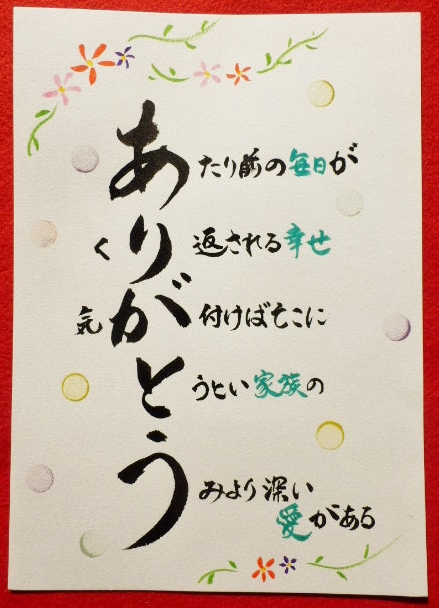 あたり前の毎日が
くり返される幸せ
気が付けばそこに
とうとい家族の
うみより深い
愛がある